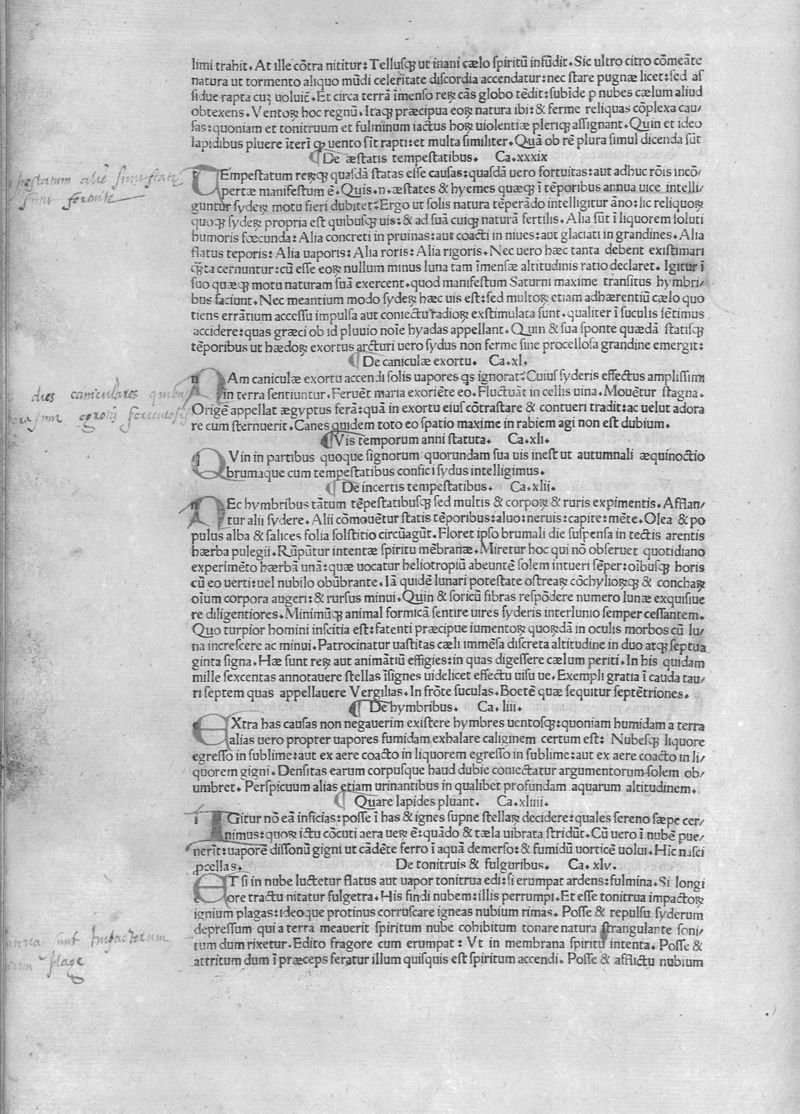 limi trahit. At ille cōtra nititur: Tellusqꝫ ut inani cælo spiritū infūdit. Sic ultro citro cōmeāte
natura ut tormento aliquo mūdi celeritate discordia accendatur: nec stare pugnæ licet: sed as
sidue rapta cuꝫ uoluit. Et circa terrā īmenso reꝝ cās globo tēdit: subīde p nubes cælum aliud
obtexens. Ventoꝝ hoc regnū. Itaqꝫ præcipua eoꝝ natura ibi: & ferme reliquas cōplexa cau/
sas: quoniam et tonitruum et fulminum iactus hoꝝ uiolentiæ pleriqꝫ assignant. Quin et ideo
lapidibus pluere īteri qꝫ uento sīt rapti: et multa similiter. Quā ob rē plura simul dicenda sūt
De æstatis tempestatibus. Ca.xxxix
TEmpestatum reꝝqꝫ quasdā statas esse causas: quasdā uero fortuitas: aut adhuc rōis incō/
pertæ manifestum ē. Quis.n. æstates & hyemes quæqꝫ ī tēporibus annua uice intelli/
guntur syderꝝ motu fieri dubitet: Ergo ut solis natura tēperādo intelligitur āno: sic reliquoꝝ
quoqꝫ syderꝝ propria est quibusqꝫ uis: & ad suā cuiqꝫ naturā fertilis. Alia sūt ī liquorem soluti
humoris fœcunda: Alia concreti in pruinas: aut coacti in niues: aut glaciati in grandines. Alia
flatus teporis: Alia uaporis: Alia roris: Alia rigoris. Nec uero hæc tanta debent existimari
qꝫta cernuntur: cū esse eoꝝ nullum minus luna tam īmensæ altitudinis ratio declaret. Igitur ī
suo quæqꝫ motu naturam suā exercent. quod manifestum Saturni maxime transitus hymbri/
bus faciunt. Nec meantium modo syderꝝ hæc uis est: sed multoꝝ etiam adhærentiū cælo quo
tiens errātium accessu impulsa aut coniectu radioꝝ exstimulata sunt. qualiter ī suculis sētimus
accidere: quas græci ob id pluuio noīe hyadas appellant. Quin & sua sponte quædā statisqꝫ
tēporibus ut hædoꝝ exortus arcturi uero sydus non ferme sine procellosa grandine emergit:
De caniculæ exortu. Ca.xl.
NAm caniculæ exortu accendi solis uapores qs ignorat: Cuius syderis effectus amplissim
in terra sentiuntur. Feruēt maria exoriēte eo. Fluctuāt in cellis uina. Mouētur stagna.
Origē appellat ægyptus ferā: quā in exortu eius cōtrastare & contueri tradit: ac uelut adora
re cum sternuerit. Canes quidem toto eo spatio maxime in rabiem agi non est dubium.
Vis temporum anni statuta. Ca.xli.
QVin in partibus quoque signorum quorundam sua uis inest ut autumnali æquinoctio
brumaque cum tempestatibus confici sydus intelligimus.
De incertis tempestatibus. Ca.xlii.
NEc hymbribus tātum tēpestatibusqꝫ sed multis & corpoꝝ & ruris expimentis. Afflan/
tur alii sydere. Alii cōmouētur statis tēporibus: aluo: neruis: capite: mēte. Olea & po
pulus alba & salices folia solstitio circūagūt. Floret ipso brumali die suspensa in tectis arentis
hærba pulegii. Rūpūtur intentæ spiritu mēbranæ. Miretur hoc qui nō obseruet quotidiano
experimēto hærbā unā: quæ uocatur heliotropiū abeuntē solem intueri sēper: oībusqꝫ horis
cū eo uerti: uel nubilo obūbrante. Iā quidē lunari potestate ostreaꝝ cōchylioꝝqꝫ & conchaꝝ
oīum corpora augeri: & rursus minui. Quin & soricū fibras respōdere numero lunæ exquisiue
re diligentiores. Minimūqꝫ animal formicā sentire uires syderis interlunio semper cessantem.
Quo turpior homini inscitia est: fatenti præcipue iumentoꝝ quoꝝdā in oculis morbos cū lu/
na increscere ac minui. Patrocinatur uastitas cæli immēsa discreta altitudine in duo atqꝫ septua
ginta signa. Hæ sunt reꝝ aut animātiū effigies: in quas digessere cælum periti. In his quidam
mille sexcentas annotauere stellas īsignes uidelicet effectu uisu ue. Exempli gratia ī cauda tau/
ri septem quas appellauere Vergilias. In frōte suculas. Boetē quæ sequitur septētriones.
De hymbribus. Ca. liii.
EXtra has causas non negauerim existere hymbres uentosqꝫ: quoniam humidam a terra
alias uero propter uapores fumidam exhalare caliginem certum est: Nubesqꝫ liquore
egresso in sublime: aut ex aere coacto in liquorem egresso in sublime: aut ex aere coacto in li/
quorem gigni. Densitas earum corpusque haud dubie coniectatur argumentorum solem ob/
umbret. Perspicuum alias etiam urinantibus in qualibet profundam aquarum altitudinem.
Quare lapides pluant. Ca.xliiii.
IGitur nō eā inficias: posse ī has & ignes supne stellaꝝ decidere: quales sereno sæpe cer/
nimus: quoꝝ ictu cōcuti aera ueꝝ ē: quādo & tæla uibrata strīdūt. Cū uero ī nubē pue/
nerīt: uaporē dissonū gigni ut cādēte ferro ī aquā demerso: & fumidū uorticē uolui. Hic nasci
pcellas. De tonitruis & fulguribus. Ca.xlv.
ET si in nube luctetur flatus aut uapor tonitrua edi: si erumpat ardens: fulmina. Si longi
ore tractu nitatur fulgetra. His findi nubem: illis perrumpi. Et esse tonitrua impactoꝝ
ignium plagas: ideoque protinus corruscare igneas nubium rimas. Posse & repulsu syderum
depressum qui a terra meauerit spiritum nube cohibitum tonare natura strangulante soni/
tum dum rixetur. Edito fragore cum erumpat: Vt in membrana spiritu intenta. Posse &
attritum dum ī præceps feratur illum quisquis est spiritum accendi. Posse & afflictu nubium
dies caniculares
sunt Impactorum
plage